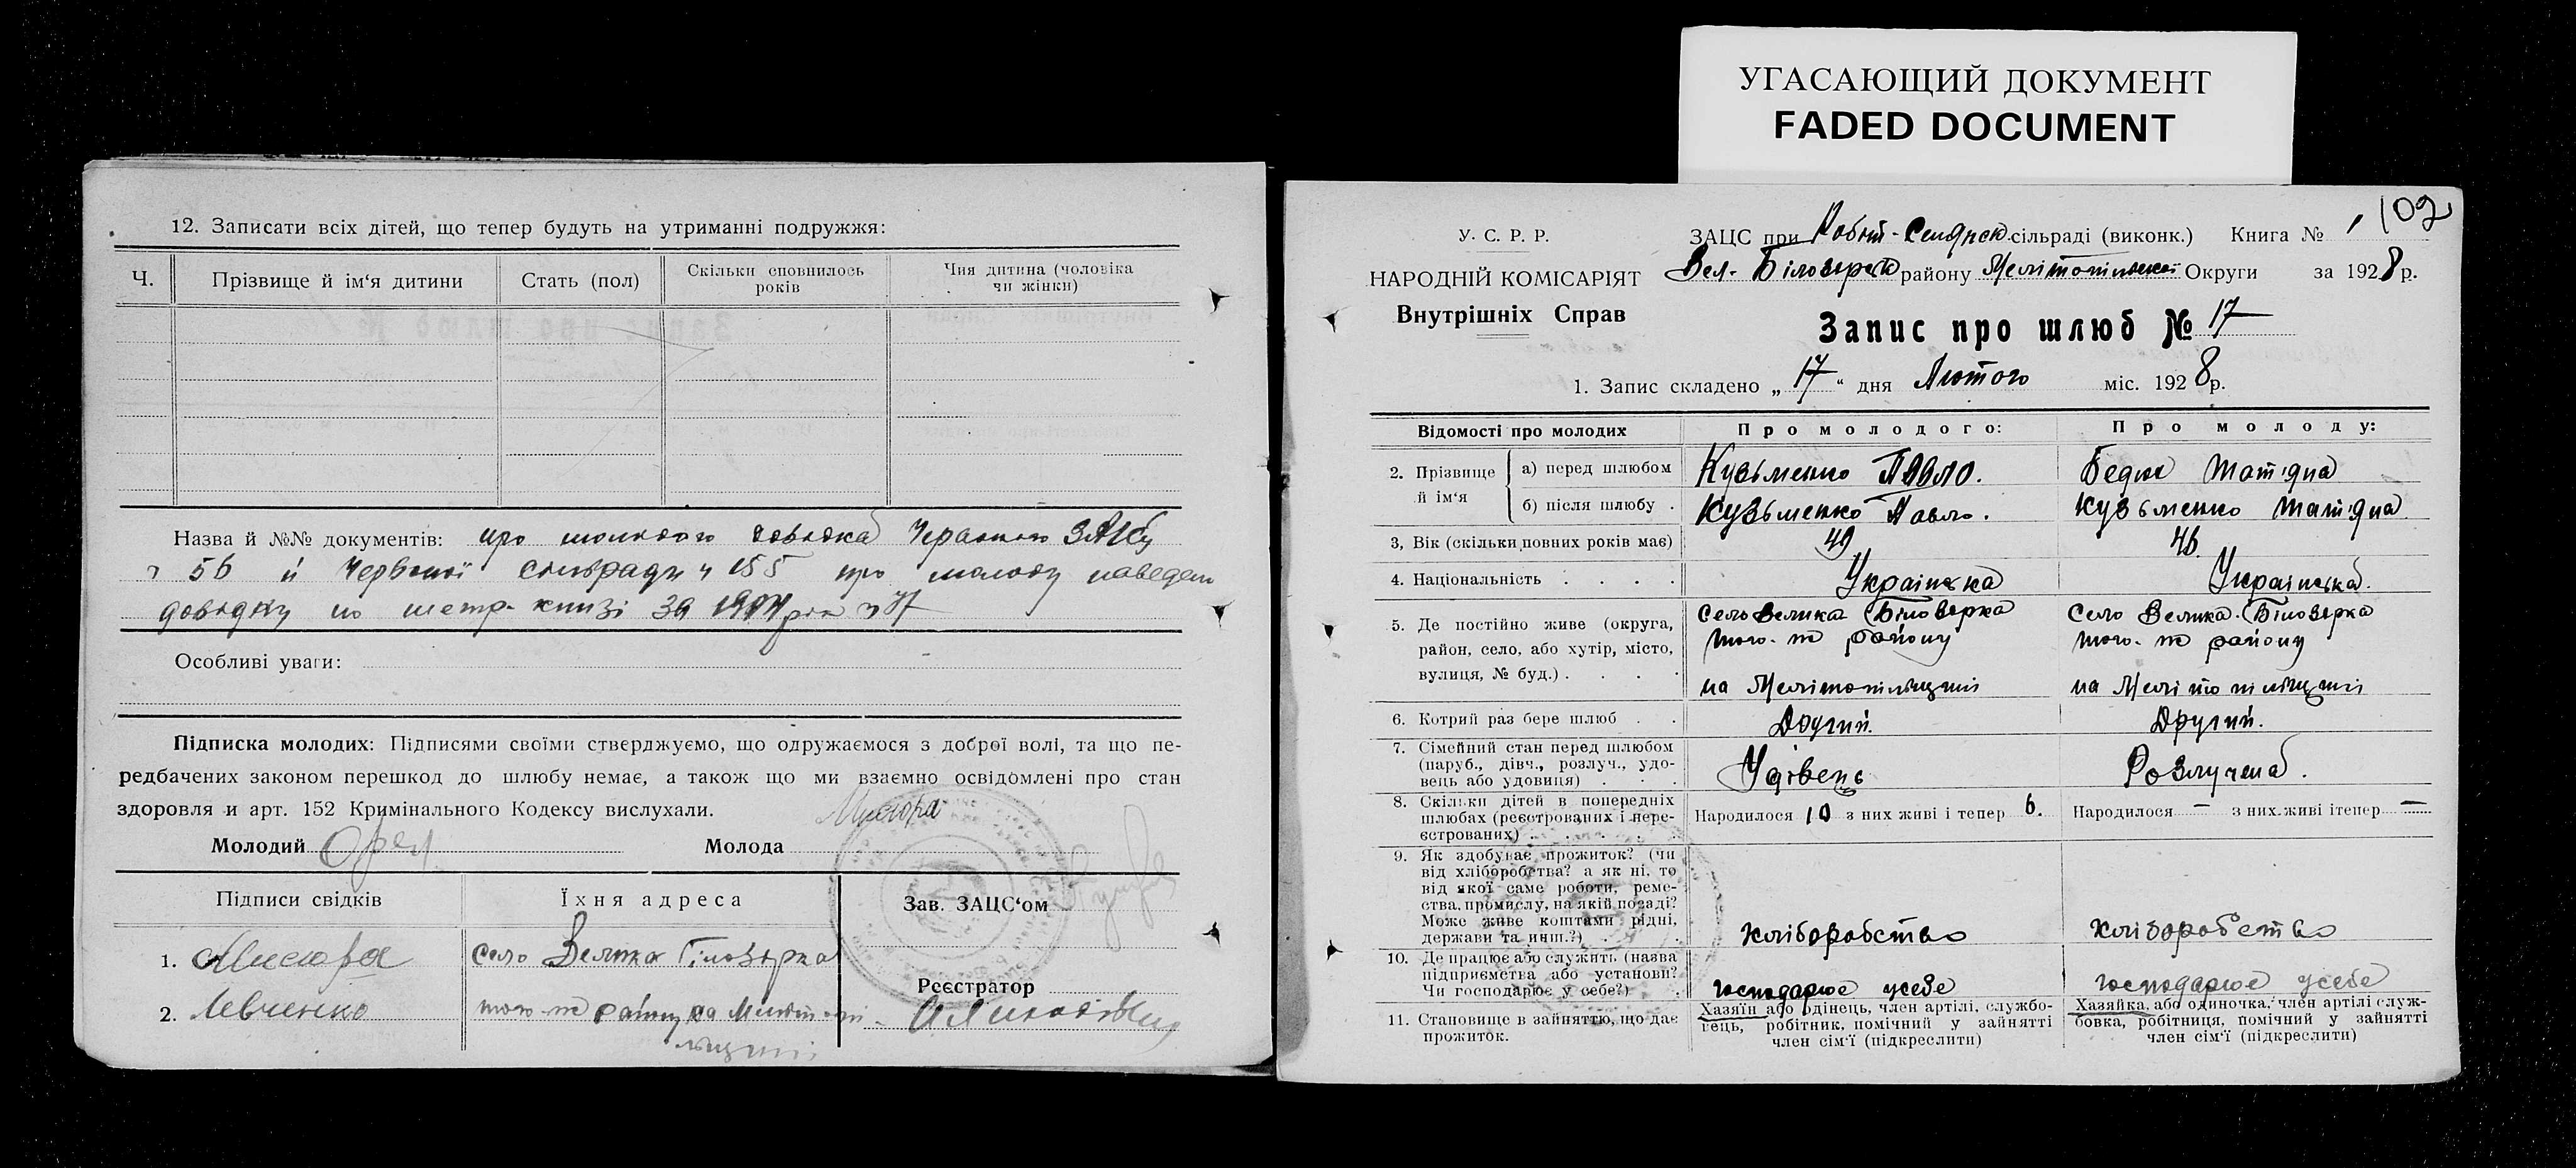 УГАСАЮЩИЙ ДОКУМЕНТ
FADED DOCUMENT
12. Записати всіх дітей, що тепер будуть на утриманні подружжя:
Ч. Прізвище й ім'я дитини Стать (пол) Скільки сповнилось років Чия дитина (чоловіка чи жінки)
Назва й №№ документів: про молодого довідка ЗАГСу
ч 56 й Червоної сільради ч 155 про молоду наведен
довідку по метр. книзі за рік ч
Особливі уваги:
Підписка молодих: Підписями своїми стверджуємо, що одружаємося з доброї волі, та що пе-
редбачених законом перешкод до шлюбу немає, а також що ми взаємно освідомлені про стан
здоровля и арт. 152 Кримінального Кодексу вислухали.
Молодий Молода Мисюра
Підписи свідків Їхня адреса Зав. ЗАЦС'ом
1. Мисюра село Велика Білозірка
2. Левченко того-ж району на Мелітопі-
льщині
Реєстратор
102
У. С. Р. Р.
НАРОДНІЙ КОМІСАРІЯТ
Внутрішніх Справ
ЗАЦС при Робіт-Селянськ. сільраді (виконк.) Книга №
Вел-Білозерськ району Мелітопільської Округи за 1928 р.
Запис про шлюб № 17
1. Запис складено „17“ дня Лютого міс. 1928 р.
Відомості про молодих Про молодого: Про молоду:
2. Прізвище й ім'я
а) перед шлюбом Кузьменко Павло. Бедюх Мотʼяна
б) після шлюбу Кузьменко Павло. Кузьменко
3, Вік (скільки повних років має) 49 46.
4. Національність Українська Українська.
5. Де постійно живе (округа, село Велика Білозірка село Велика-Білозірка
район, село, або хутір, місто, того-ж району того-ж району
вулиця, № буд.) на Мелітопільщині на Мелітопільщині
6. Котрий раз бере шлюб Другий. Другий.
7. Сімейний стан перед шлюбом
(паруб., дівч., розлуч., удо- Удівець Розлучена.
вець або удовиця)
8. Скільки дітей в попередніх
шлюбах (реєстрованих і нере- Народилося 10 з них живі і тепер 6. Народилося — з них живі і тепер —
єстрованих)
9. Як здобуває прожиток? (чи
від хліборобства? а як ні, то
від якої саме роботи, реме-
ства, промислу, на якій посаді?
Може живе коштами рідні,
держави та инш.?) Хліборобство Хліборобство
10. Де працює або служить (назва
підприємства або установи?
Чи господарює у себе?) господарює усебе господарює усебе
11. Становище в зайняттю, що дає
прожиток.
Хазяїн або одінець, член артілі, службо-
вець, робітник, помічний у зайнятті
член сім'ї (підкреслити)
Хазяйка або одиночка, член артілі служ-
бовка, робітниця, помічний у зайнятті
член сім'ї (підкреслити)